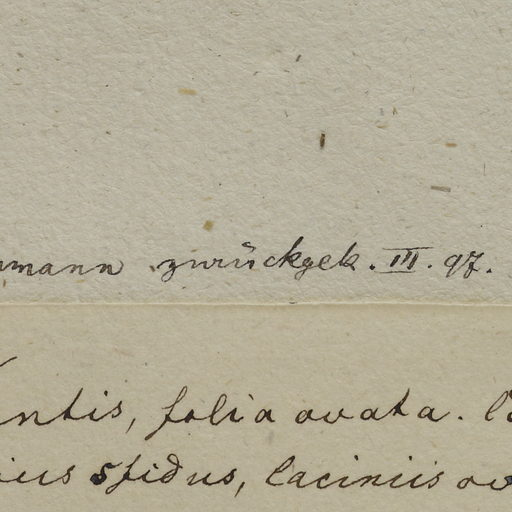 mann zurückgek. III. 97.
ntis, folia ovata.
5fidus, laciniis ov